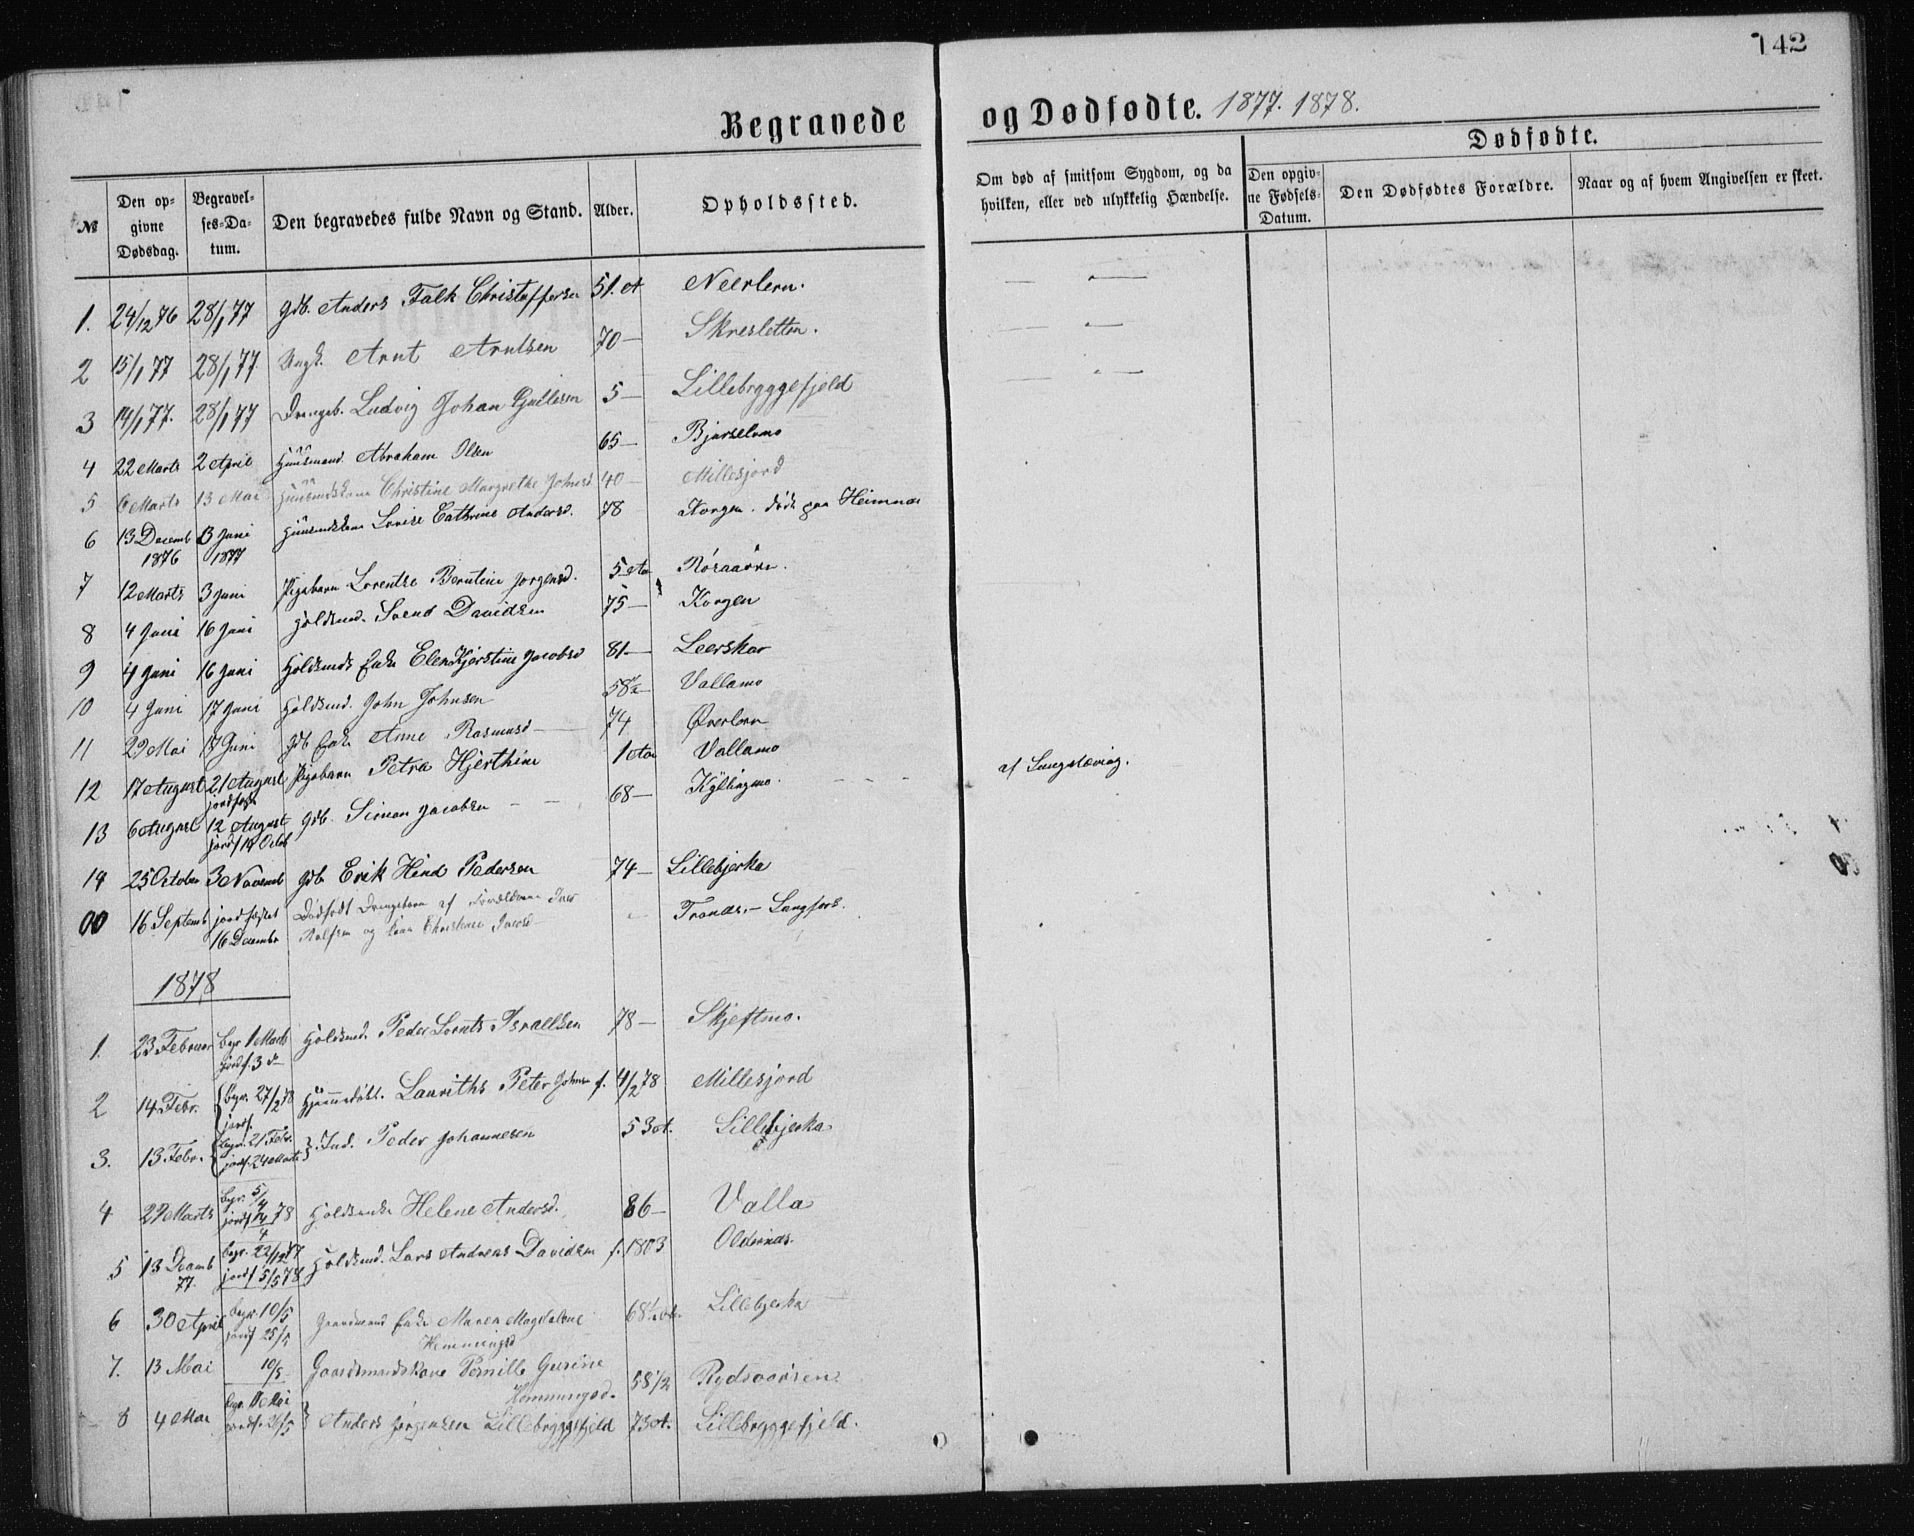 142
Begravede og Dødfødte. 1877. 1878.
№ Den opgivne Dødsdag. Begravelses-Datum. Den begravedes fulde Navn og Stand. Alder. Opholdssted. Om død af smitsom Sygdom, og da hvilken, eller ved ulykkelig Hændelse. Dødfødte.
Den opgivne Fødsels-Datum. Den Dødfødtes Forældre. Naar og af hvem Angivelsen er skeet.
1. 24/12 76 28/1 77 Gdb. Anders Falk Christoffersen 51. et Neerlern. — " —
2 15/1 77 28/1 77 Ungk. Arnt Arntsen 70 — Skresletten. — " —
3 14/1 77. 28/1 77 Drengeb. Ludvig Johan 5 — Lillebryggefjeld — " —
4 22 Marts 2 April Huusmand Abraham Olsen 65 —
5 6 Marts 13 Mai Christine Margrethe Johnsd 40 — Millesjord
6 13 Decemb 1876 3 Juni 1877 Lovise Cathrine Andersd. 78 Korgen. døde paa Heimnæs
7 12 Marts 3 Juni Pigebarn Lorentse Berntine Jørgensd. 5 Røsaaøren.
8 4 Juni 16 Juni Holdsmd. Svend Davidsen 75 — Korgen
9 4 Juni 16 Juni Holdsmds Enke Elen Kjerstine Jacobsd 81 — Leerskar
10 4 Juni 17 Juni Holdsmd. John Johnsen 58½ — Vallamo
11 29 Mai 17 Juni Gdb Enke Anne Rasmusd — 74 Øverlern
12 17 August 21 August jordfæst Pigebarn Petra Hjerthine 1 Vallamo
13 6 August 12 August jordf 14 Octob Gdb. Simon Jacobsen — — 68 — Kyllingmo. af Lungetæring.
14 25 October 3 Novemb Gdb Erik Hind Pedersen 74 — Lillebjerka
00 16 Septemb jordfæstet 16 Decembr Dødfødt Drengebarn af Forældrene Iver
Rolfsen og Christense Tranæs — Langfjord.
1878
1. 23 Februar begr 1 Marts jordf. 3 d Holdsmd. Peder Lornts Israelsen 78 — Skjeftmo.
2 14 Febr. begr. 27/2 78 jordf. Hjemmedøbt. Lauriths Peter Johnsen f. 4/2 78 Millesjord
3. 13 Febr. begr. 21 Febr. jordf. 24 Marts Ind. Peder Johannesen 53 et. Lillebjerka
4 29 Marts begr. 5/4 jordf 14/4 78 Holdsenke Helene Andersd. 86 — Valla
5 13 Decemb 77. begr. 22/12 77 jordf 5/5 78 Holdsmd. Lars Andreas Davidsen f. 1803 Oldernæs.
6 30 April begr. 10/5 jordf 25/5 Gaardmand Enke Maren Magdalene
Hemmingsd 68½ et. Lillebjerka —
7. 13 Mai 10/5 Gaardmandskone Pernille Gurine
Hemmingsd. 58½
8 4 Mai begr. 11 Mai jordf. 26/5 Anders Jørgensen Lillebryggefjeld 73 et. Lillebryggefjeld.